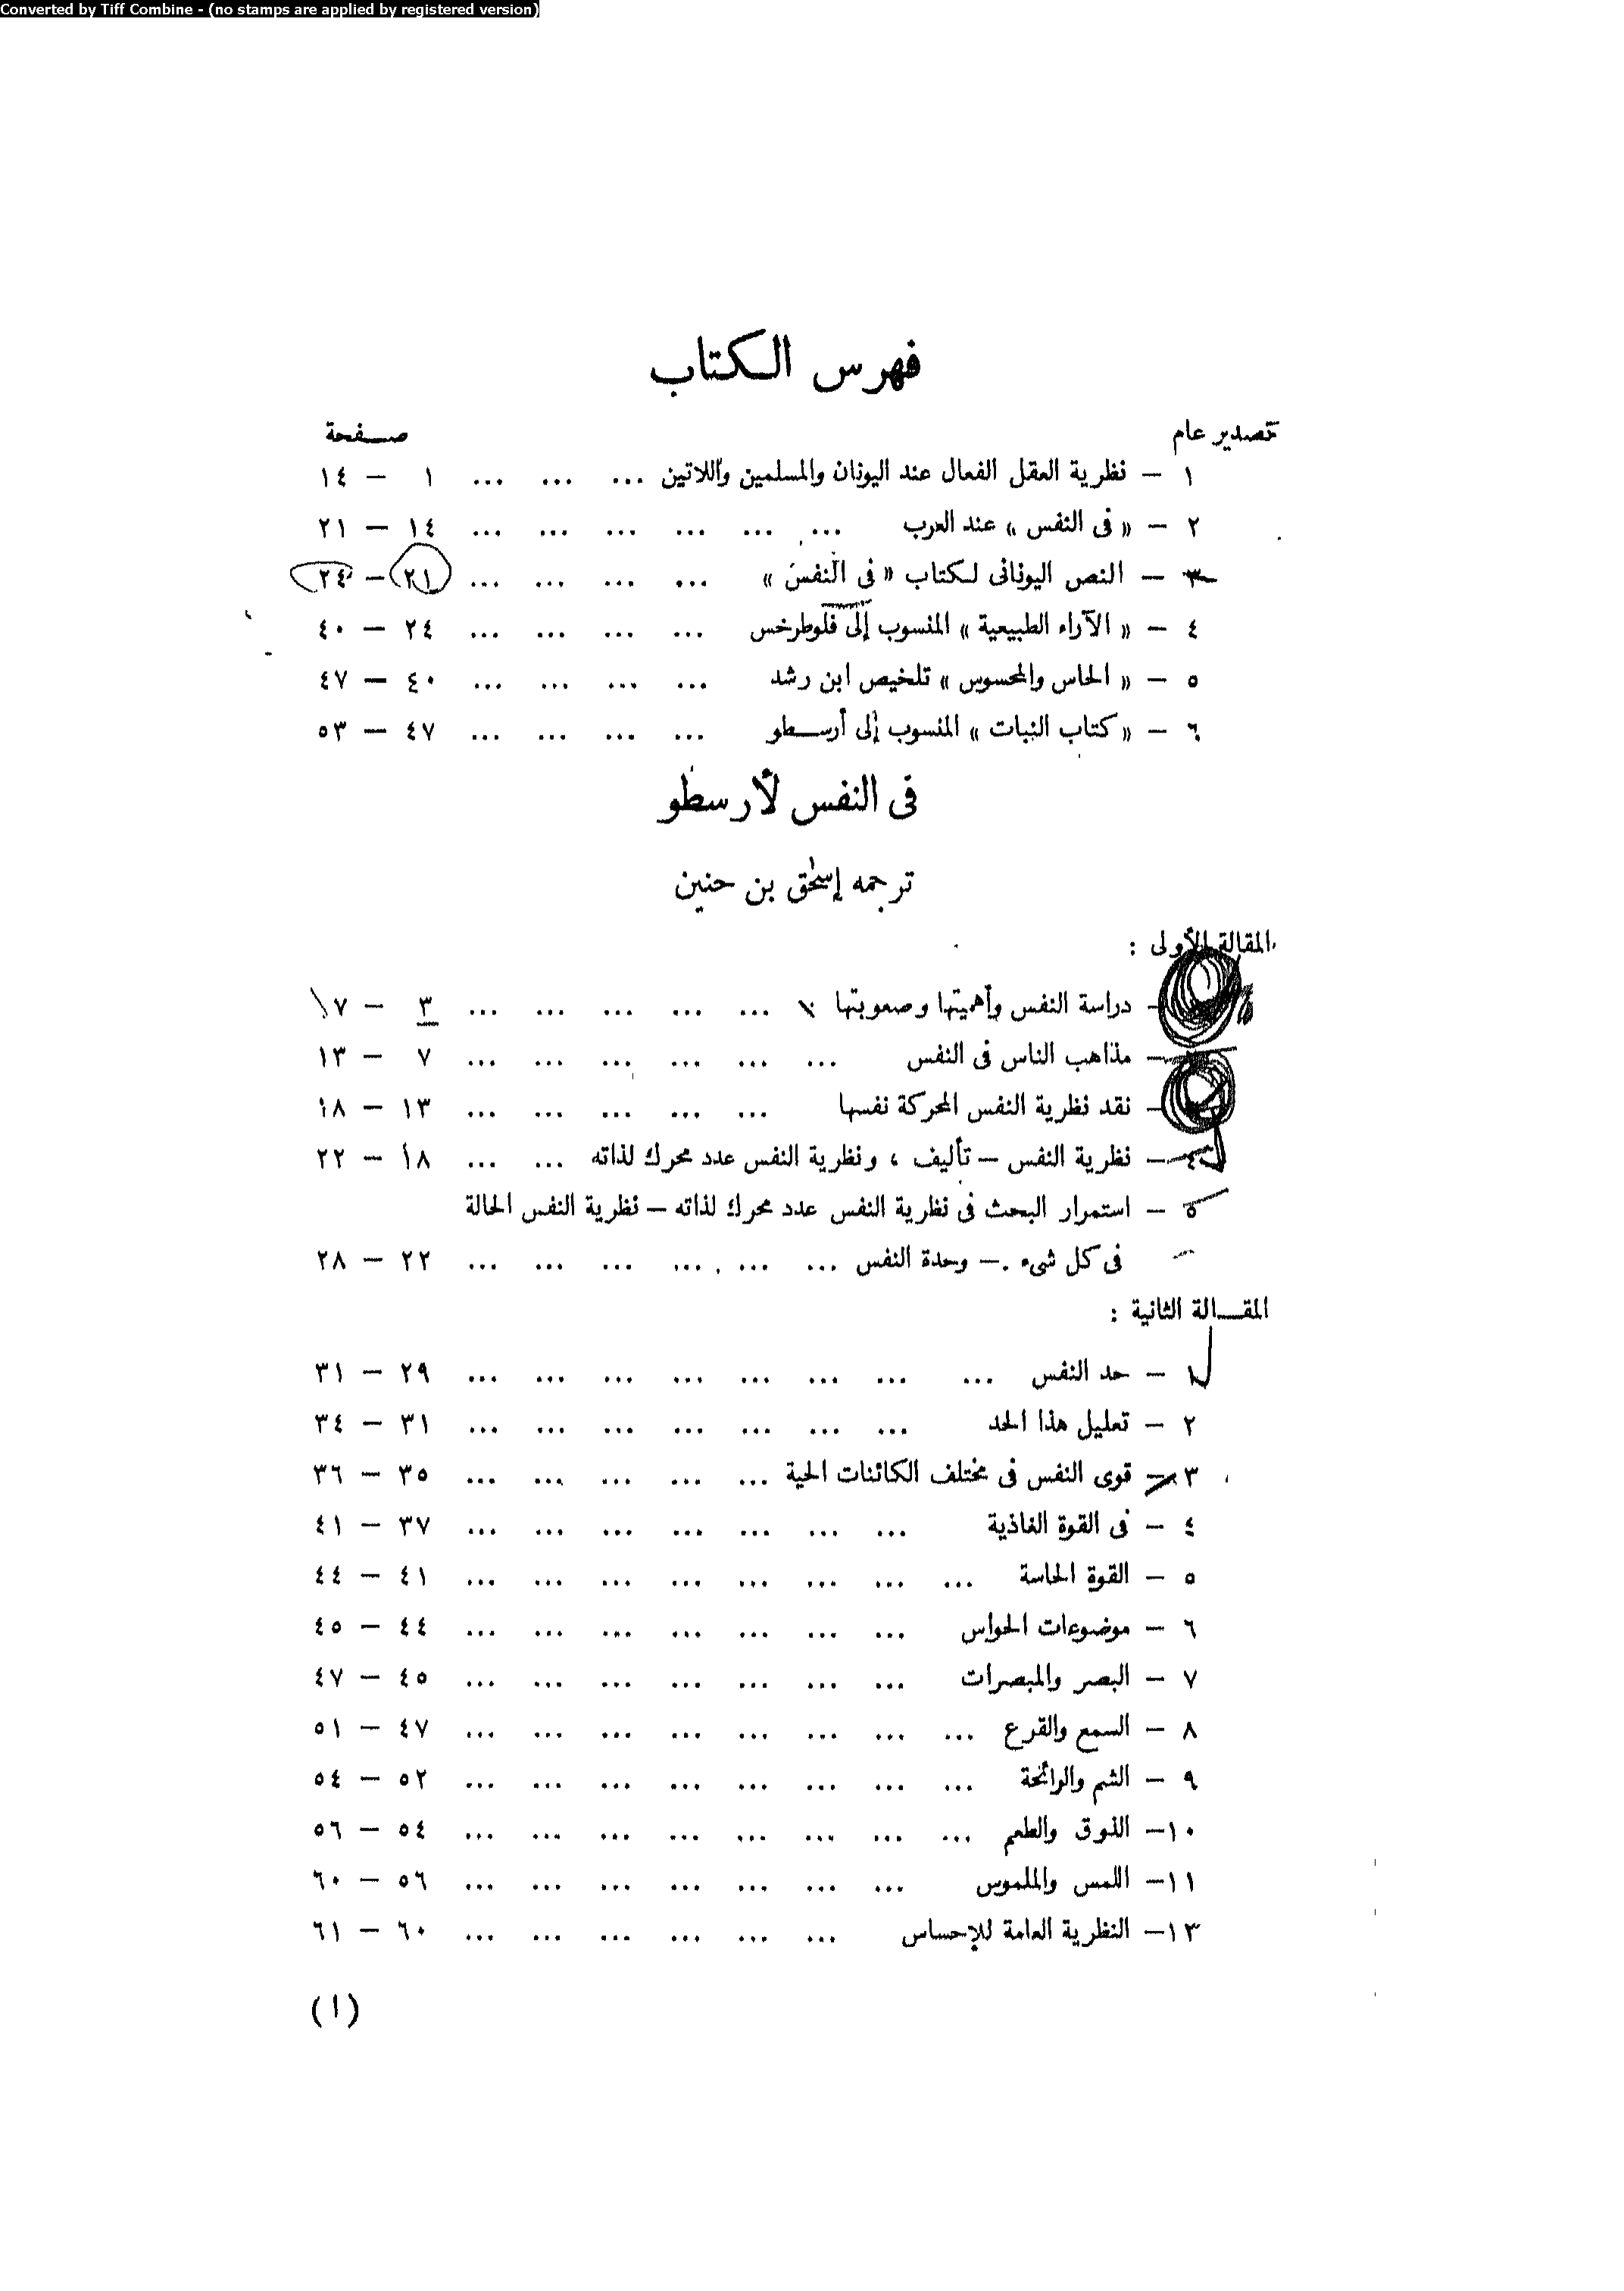 Converted by Tiff Combine - (no stamps are applied by registered version)
فهرس الكتاب
تصدير عام صفحة
١ — نظرية العقل الفعال عند اليونان والمسلمين واللاتين ... ... ... ١ — ١٤
٢ — « فى النفس » عند العرب ... ... ... ... ... ... ١٤ — ٢١
٣ — النص اليونانى لكتاب « فى النفس » ... ... ... ... ٢١ — ٢٤
٤ — « الآراء الطبيعية » المنسوب إلى فلوطرخس ... ... ... ... ٢٤ — ٤٠
٥ — « الحاس والمحسوس » تلخيص ابن رشد ... ... ... ... ٤٠ — ٤٧
٦ — « كتاب النبات » المنسوب إلى أرسطو ... ... ... ... ٤٧ — ٥٣
فى النفس لأرسطو
ترجمه إسحٰق بن حنين
المقالة الأولى :
— دراسة النفس وأهميتها وصعوبتها ... ... ... ... ... ٣ — ٧
— مذاهب الناس فى النفس ... ... ... ... ... ... ٧ — ١٣
— نقد نظرية النفس المحركة نفسها ... ... ... ... ... ١٣ — ١٨
٤ — نظرية النفس — تأليف ، ونظرية النفس عدد محرك لذاته ... ... ١٨ — ٢٢
٥ — استمرار البحث فى نظرية النفس عدد محرك لذاته — نظرية النفس الحالة
فى كل شىء . — وحدة النفس ... ... ... ... ... ... ٢٢ — ٢٨
المقالة الثانية :
١ — حد النفس ... ... ... ... ... ... ... ... ٢٩ — ٣١
٢ — تعليل هذا الحد ... ... ... ... ... ... ... ٣١ — ٣٤
٣ — قوى النفس فى مختلف الكائنات الحية ... ... ... ... ... ٣٥ — ٣٦
٤ — فى القوة الغاذية ... ... ... ... ... ... ... ٣٧ — ٤١
٥ — القوة الحاسة ... ... ... ... ... ... ... ... ٤١ — ٤٤
٦ — موضوعات الحواس ... ... ... ... ... ... ... ٤٤ — ٤٥
٧ — البصر والمبصرات ... ... ... ... ... ... ... ٤٥ — ٤٧
٨ — السمع والقرع ... ... ... ... ... ... ... ... ٤٧ — ٥١
٩ — الشم والرائحة ... ... ... ... ... ... ... ... ٥٢ — ٥٤
١٠— الذوق والطعم ... ... ... ... ... ... ... ... ٥٤ — ٥٦
١١— اللمس والملموس ... ... ... ... ... ... ... ٥٦ — ٦٠
١٣— النظرية العامة للإحساس ... ... ... ... ... ... ٦٠ — ٦١
(١)